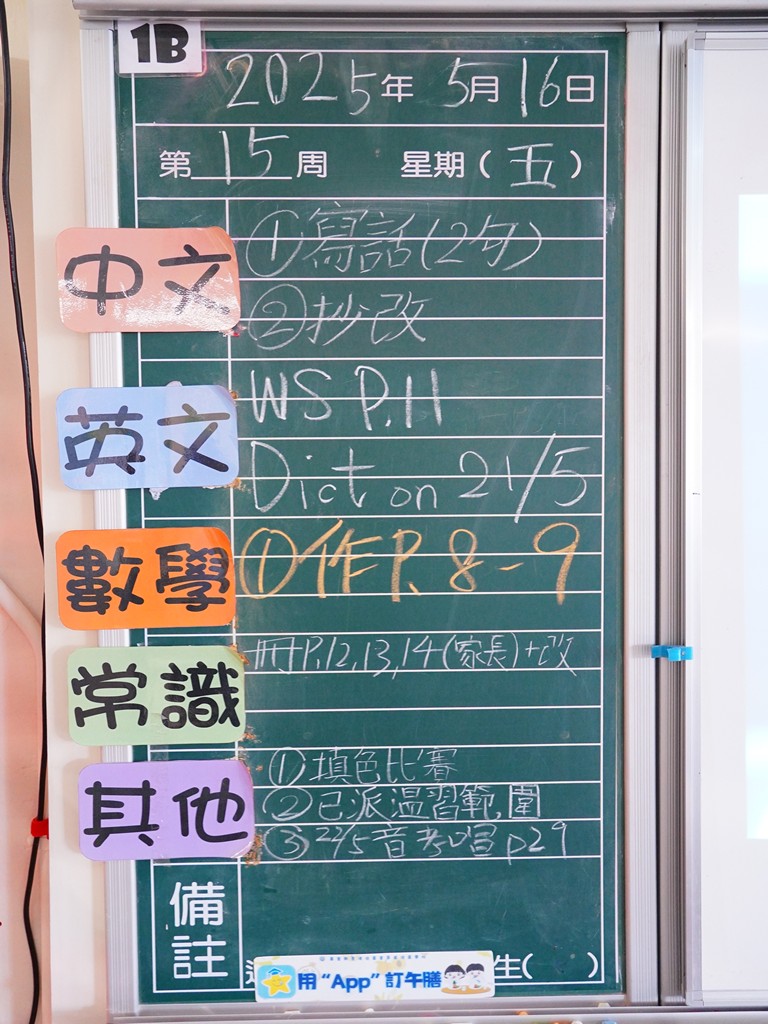 1B
2025年 5月16日
第15周 星期(五)
中文
①寫話(2句)
②抄改
英文
WS P.11
Dict on 21/5
數學
①作P. 8-9
常識
冊P.12,13,14(家長)+改
其他
①填色比賽
②已派温習範圍
③22/5音考唱p29
備註
生( )
用“App”訂午膳